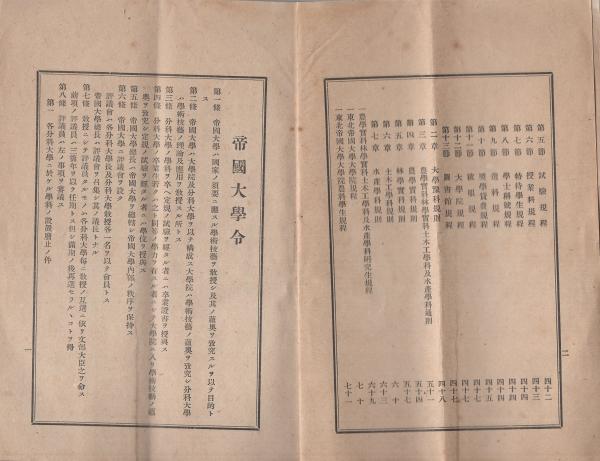 二
第五節 試驗規程 四十二
第六節 授業料規程 四十三
第七節 特待學生規程 四十四
第八節 學士稱號規程 四十四
第九節 選科規程 四十五
第十節 獎學貸費規程 四十七
第十一節 徵規程 四十七
第十二節 大學院規程 四十七
第十三節 規程 四十八
第二章 大學豫科規則 五十一
第三章 農學實科林學實科土木工學科及水產學科通則 五十四
第四章 農學實科規則 五十七
第五章 林學實科規則 六十
第六章 土木工學科規則 六十三
第七章 水產學科規則 六十九
一農學實科林學實科土木工學科及水產學科研究生規程 七十
一東北帝國大學大學院規程
一東北帝國大學大學院農科學生規程 七十一
帝國大學令
第一條 帝國大學ハ國家ノ須要ニ應スル學術技藝ヲ教授シ及其ノ蘊奧ヲ攷究スルヲ以テ目的ト
ス
第二條 帝國大學ハ大學院及分科大學ヲ以テ構成ス大學院ハ學術技藝ノ蘊奧ヲ攷究シ分科大學
ハ學術技藝ノ理論及應用ヲ教授スル所トス
第三條 分科大學ノ學科ヲ卒ヘ定規ノ試驗ヲ經タル者ニハ卒業證書ヲ授與ス
第四條 分科大學ノ卒業生若クハ之ト同等ノ學力ヲ有スル者ニシテ大學院ニ入リ學術技藝ノ蘊
奧ヲ攷究シ定規ノ試驗ヲ經タル者ニハ學位ヲ授與ス
第五條 帝國大學總長ハ帝國大學ヲ總轄シ帝國大學內部ノ秩序ヲ保持ス
第六條 帝國大學ニ評議會ヲ設ク
評議會ハ各分科大學長及分科大學教授各一名ヲ以テ會員トス
帝國大學總長ハ評議會ヲ召集シ其ノ議長トナル
第七條 教授ニシテ評議員タルモノハ各分科大學每ニ教授ノ互選ニ依リ文部大臣之ヲ命ス
前項ノ評議員ハ三箇年ヲ以テ任期トス但シ滿期ノ後再選セラルヽコトヲ得
第八條 評議會ハ左ノ事項ヲ審議ス
第一 各分科大學ニ於ケル學科ノ設置廢止ノ件
一